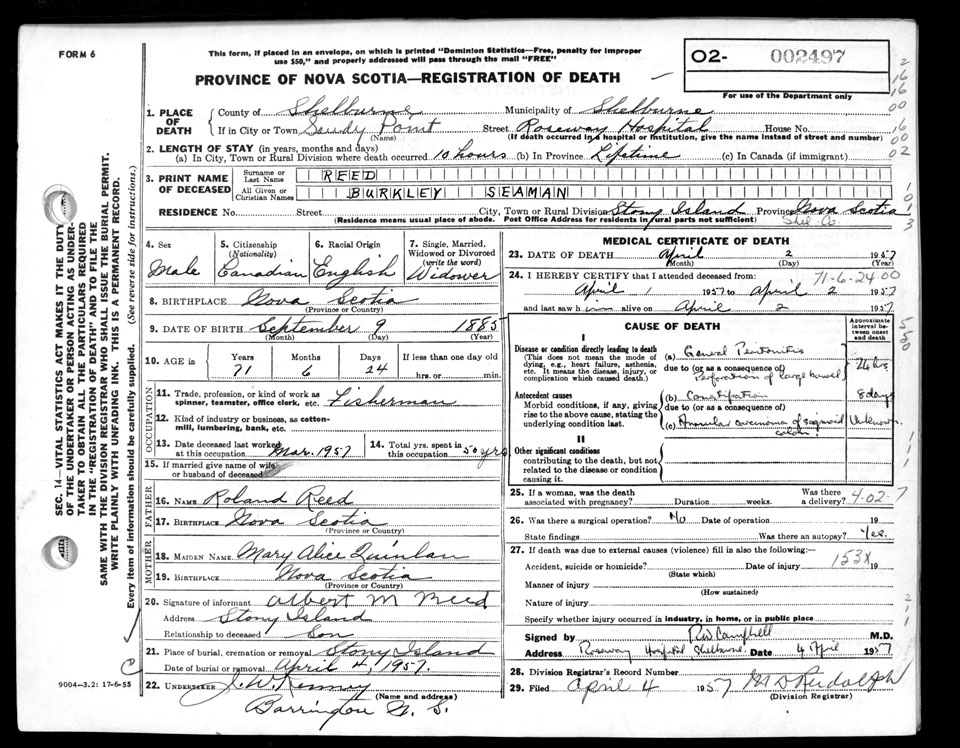 FORM 6
This form, if placed in an envelope, on which is printed "Dominion Statistics—Free, penalty for improper
use $50," and properly addressed will pass through the mail "FREE"
PROVINCE OF NOVA SCOTIA—REGISTRATION OF DEATH
O2- 002497
For use of the Department only
SEC. 14—VITAL STATISTICS ACT MAKES IT THE DUTY
OF THE UNDERTAKER OR PERSON ACTING AS UNDER-
TAKER TO OBTAIN ALL THE PARTICULARS REQUIRED
IN THE "REGISTRATION OF DEATH" AND TO FILE THE
SAME WITH THE DIVISION REGISTRAR WHO SHALL ISSUE THE BURIAL PERMIT.
WRITE PLAINLY WITH UNFADING INK. THIS IS A PERMANENT RECORD.
Every item of information should be carefully supplied. (See reverse side for instructions.)
1. PLACE OF DEATH
County of Shelburne Municipality of Shelburne
If in City or Town Sandy Point Street Roseway Hospital House No.
(Name) (If death occurred in a hospital or institution, give the name instead of street and number)
2. LENGTH OF STAY (in years, months and days)
(a) In City, Town or Rural Division where death occurred 10 hours (b) In Province Lifetime (c) In Canada (if immigrant)
3. PRINT NAME OF DECEASED
Surname or Last Name REED
All Given or Christian Names BURKLEY SEAMAN
RESIDENCE No. Street City, Town or Rural Division Stony Island Province Nova Scotia
(Residence means usual place of abode. Post Office Address for residents in rural parts not sufficient) Shel. Co.
4. Sex
Male
5. Citizenship (Nationality)
Canadian
6. Racial Origin
English
7. Single, Married, Widowed or Divorced (write the word)
Widower
8. BIRTHPLACE Nova Scotia
(Province or Country)
9. DATE OF BIRTH September 9 1885
(Month) (Day) (Year)
10. AGE in Years Months Days If less than one day old
71 6 24 hrs. or min.
OCCUPATION
11. Trade, profession, or kind of work as
spinner, teamster, office clerk, etc. Fisherman
12. Kind of industry or business, as cotton-
mill, lumbering, bank, etc.
13. Date deceased last worked
at this occupation Mar. 1957
14. Total yrs. spent in
this occupation 50 yrs
15. If married give name of wife
or husband of deceased
FATHER
16. Name Roland Reed
17. Birthplace Nova Scotia
(Province or Country)
MOTHER
18. Maiden Name Mary Alice Quinlan
19. Birthplace Nova Scotia
(Province or Country)
20. Signature of informant Albert M Reed
Address Stony Island
Relationship to deceased Son
21. Place of burial, cremation or removal Stony Island
Date of burial or removal April 4, 1957.
22. Undertaker J. W. Kenney
(Name and address)
Barrington N. S.
9004—3.2: 17-6-55
MEDICAL CERTIFICATE OF DEATH
23. DATE OF DEATH April 2 1957
(Month) (Day) (Year)
24. I HEREBY CERTIFY that I attended deceased from: 71-6-24 00
April 1 1957 to April 2 1957
and last saw him alive on April 2 1957
CAUSE OF DEATH
Approximate interval between onset and death
I
Disease or condition directly leading to death
(This does not mean the mode of
dying, e.g., heart failure, asthenia,
etc. It means the disease, injury, or
complication which caused death.)
(a) General Peritonitis
due to (or as a consequence of)
Perforation of large bowel
24 hrs.
Antecedent causes
Morbid conditions, if any, giving
rise to the above cause, stating the
underlying condition last.
(b) Constipation 8 days
due to (or as a consequence of)
(c) Annular carcinoma of sigmoid
colon
Unknown
II
Other significant conditions
contributing to the death, but not
related to the disease or condition
causing it.
25. If a woman, was the death
associated with pregnancy? Duration weeks. Was there
a delivery? 4-02-7
26. Was there a surgical operation? No Date of operation 19
State findings Was there an autopsy? Yes.
27. If death was due to external causes (violence) fill in also the following:—
Accident, suicide or homicide? Date of injury 153X 19
(State which)
Manner of injury
(How sustained)
Nature of injury
Specify whether injury occurred in industry, in home, or in public place
Signed by RW Campbell M.D.
Address Roseway Hospital Shelburne Date 4 April 1957
28. Division Registrar's Record Number
29. Filed April 4 1957 M D Rudolph
(Division Registrar)